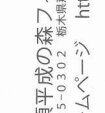 平成の森フ
5-0302 栃木県
ムページ htt